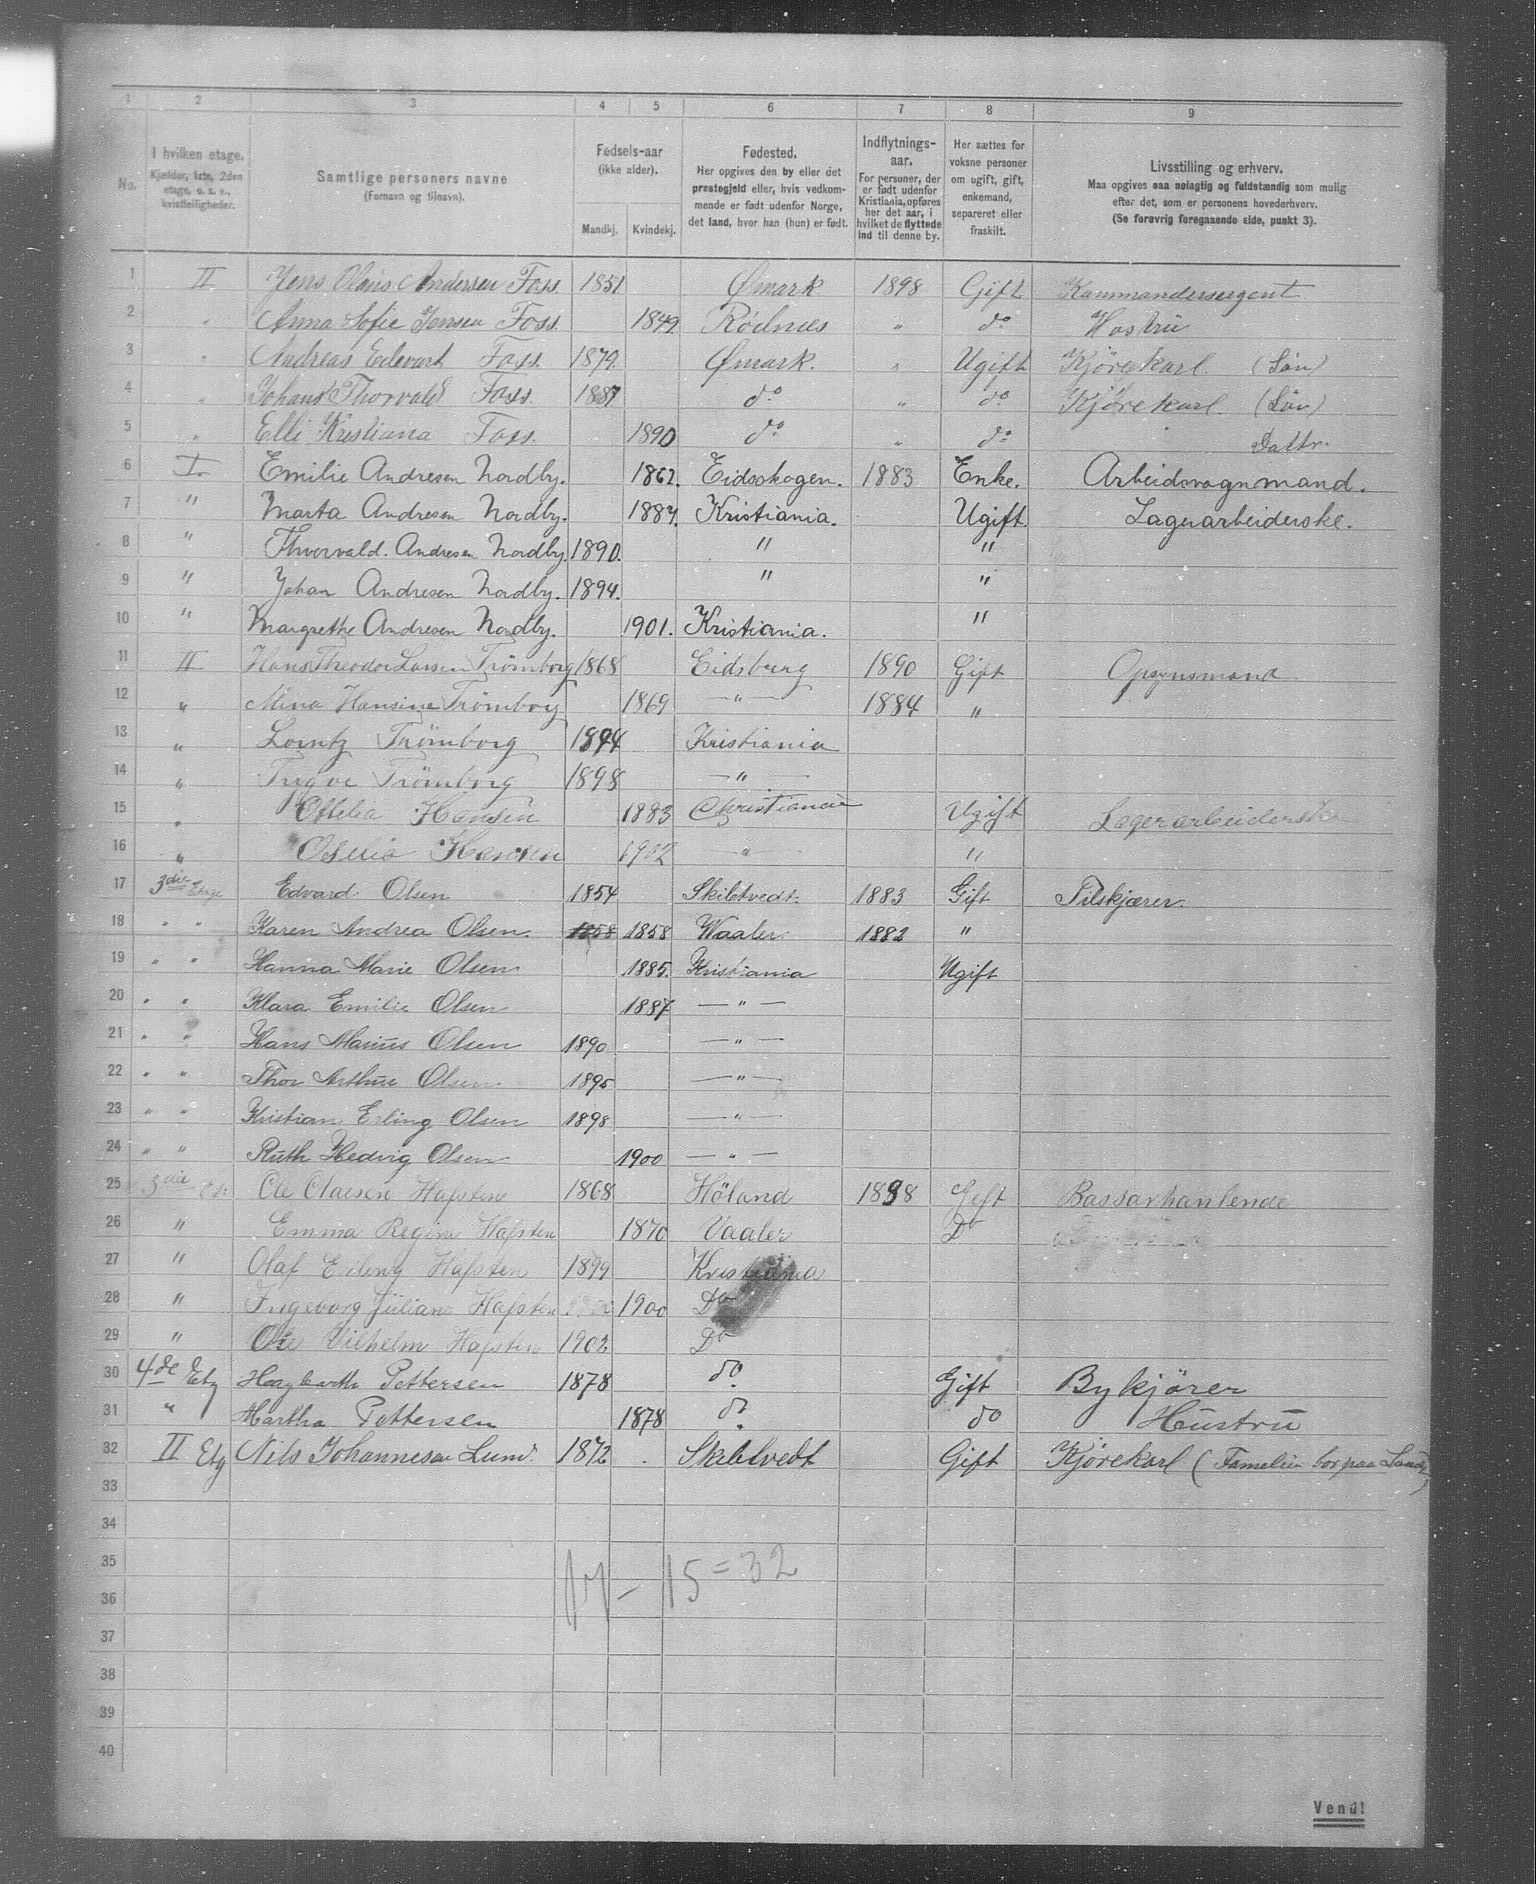 1 2 3 4 5 6 7 8 9
No.
I hvilken etage.
Kjælder, 1ste, 2den etage, o. s. v., kvistleiligheder.
Samtlige personers navne
(Fornavn og tilnavn).
Fødsels-aar
(ikke alder).
Mandkj. Kvindekj.
Fødested.
Her opgives den by eller det prestegjeld eller, hvis vedkommende er født udenfor Norge, det land, hvor han (hun) er født.
Indflytnings-aar.
For personer, der er født udenfor Kristiania, opføres her det aar, i hvilket de flyttede ind til denne by.
Her sættes for voksne personer om ugift, gift, enkemand, separeret eller fraskilt.
Livsstilling og erhverv.
Maa opgives saa nøiagtig og fuldstændig som mulig efter det, som er personens hovederhverv.
(Se forøvrig foregaaende side, punkt 3).
1 II Jens Olaus Andersen Foss 1851 Ømark 1898 Gift Kammandersergent
2 " Anna Sofie Jensen Foss. 1849 Rødnæs " do Hustru
3 " Andreas Edevart Foss. 1879 Ømark. " Ugift Kjørekarl. (Søn)
4 " Johans Thorvald Foss. 1887 do " do Kjørekarl. (Søn)
5 " Elli Kristiana Foss. 1890 do " do Dattr.
6 I. Emilie Andresen Nordby. 1862. Eidsskogen. 1883 Enke. Arbeidsvognmand.
7 " Marta Andresen Nordby. 1887. Kristiania. Ugift. Lagerarbeiderske.
8 " Thvorvald. Andresen Nordby. 1890. " "
9 " Johan Andresen Nordby. 1894. " "
10 " Margrethe Andresen Nordby. 1901. Kristiania. "
11 II Hans Theodor Larsen Trömborg 1868 Eidsberg 1890 Gift Opsynsmand
12 " Mina Hansine Trömborg 1869 — " — 1884 "
13 " Lorntz Trömborg 1894 Kristiania
14 " Trygve Trömborg 1898 — " —
15 " Ottelia Hansen 1883 Christiania Ugift Lagerarbeiderske
16 " Hansen 1902 " "
17 3die Etage Edvard Olsen 1854 Skibtvedt. 1883 Gift Pilskjærer.
18 " " Karen Andrea Olsen. 1858 1858 Waaler. 1882 "
19 " " Hanna Marie Olsen 1885. Kristiania Ugift
20 " " Klara Emilie Olsen 1887 — " —
21 " " Hans Marius Olsen 1890 — " —
22 " " Thor Arthur Olsen 1895 — " —
23 " " Kristian Erling Olsen 1898 — " —
24 " " Ruth Hedvig Olsen 1900 — " —
25 3die Et. Ole Olaesen Hafsten 1868 Höland 1898 Gift Bassarhanlende
26 " Emma Regine Hafsten 1870 Vaaler Do
27 " Olaf Erling Hafsten 1899 Kristiania
28 " Ingeborg Juliane Hafsten 1900 Do
29 " Ose Vilhelm Hafsten 1902 Do
30 4de Etg Haybarth Pettersen 1878 do Gift Bykjörer
31 " Martha Pettersen 1878 do do Hustru
32 II Etg Nils Johannesen Lund. 1872 Skibtvedt Gift Kjørekarl (Famelien bor paa Landet)
33
34
35
36
17 – 15 = 32
37
38
39
40
Vend!